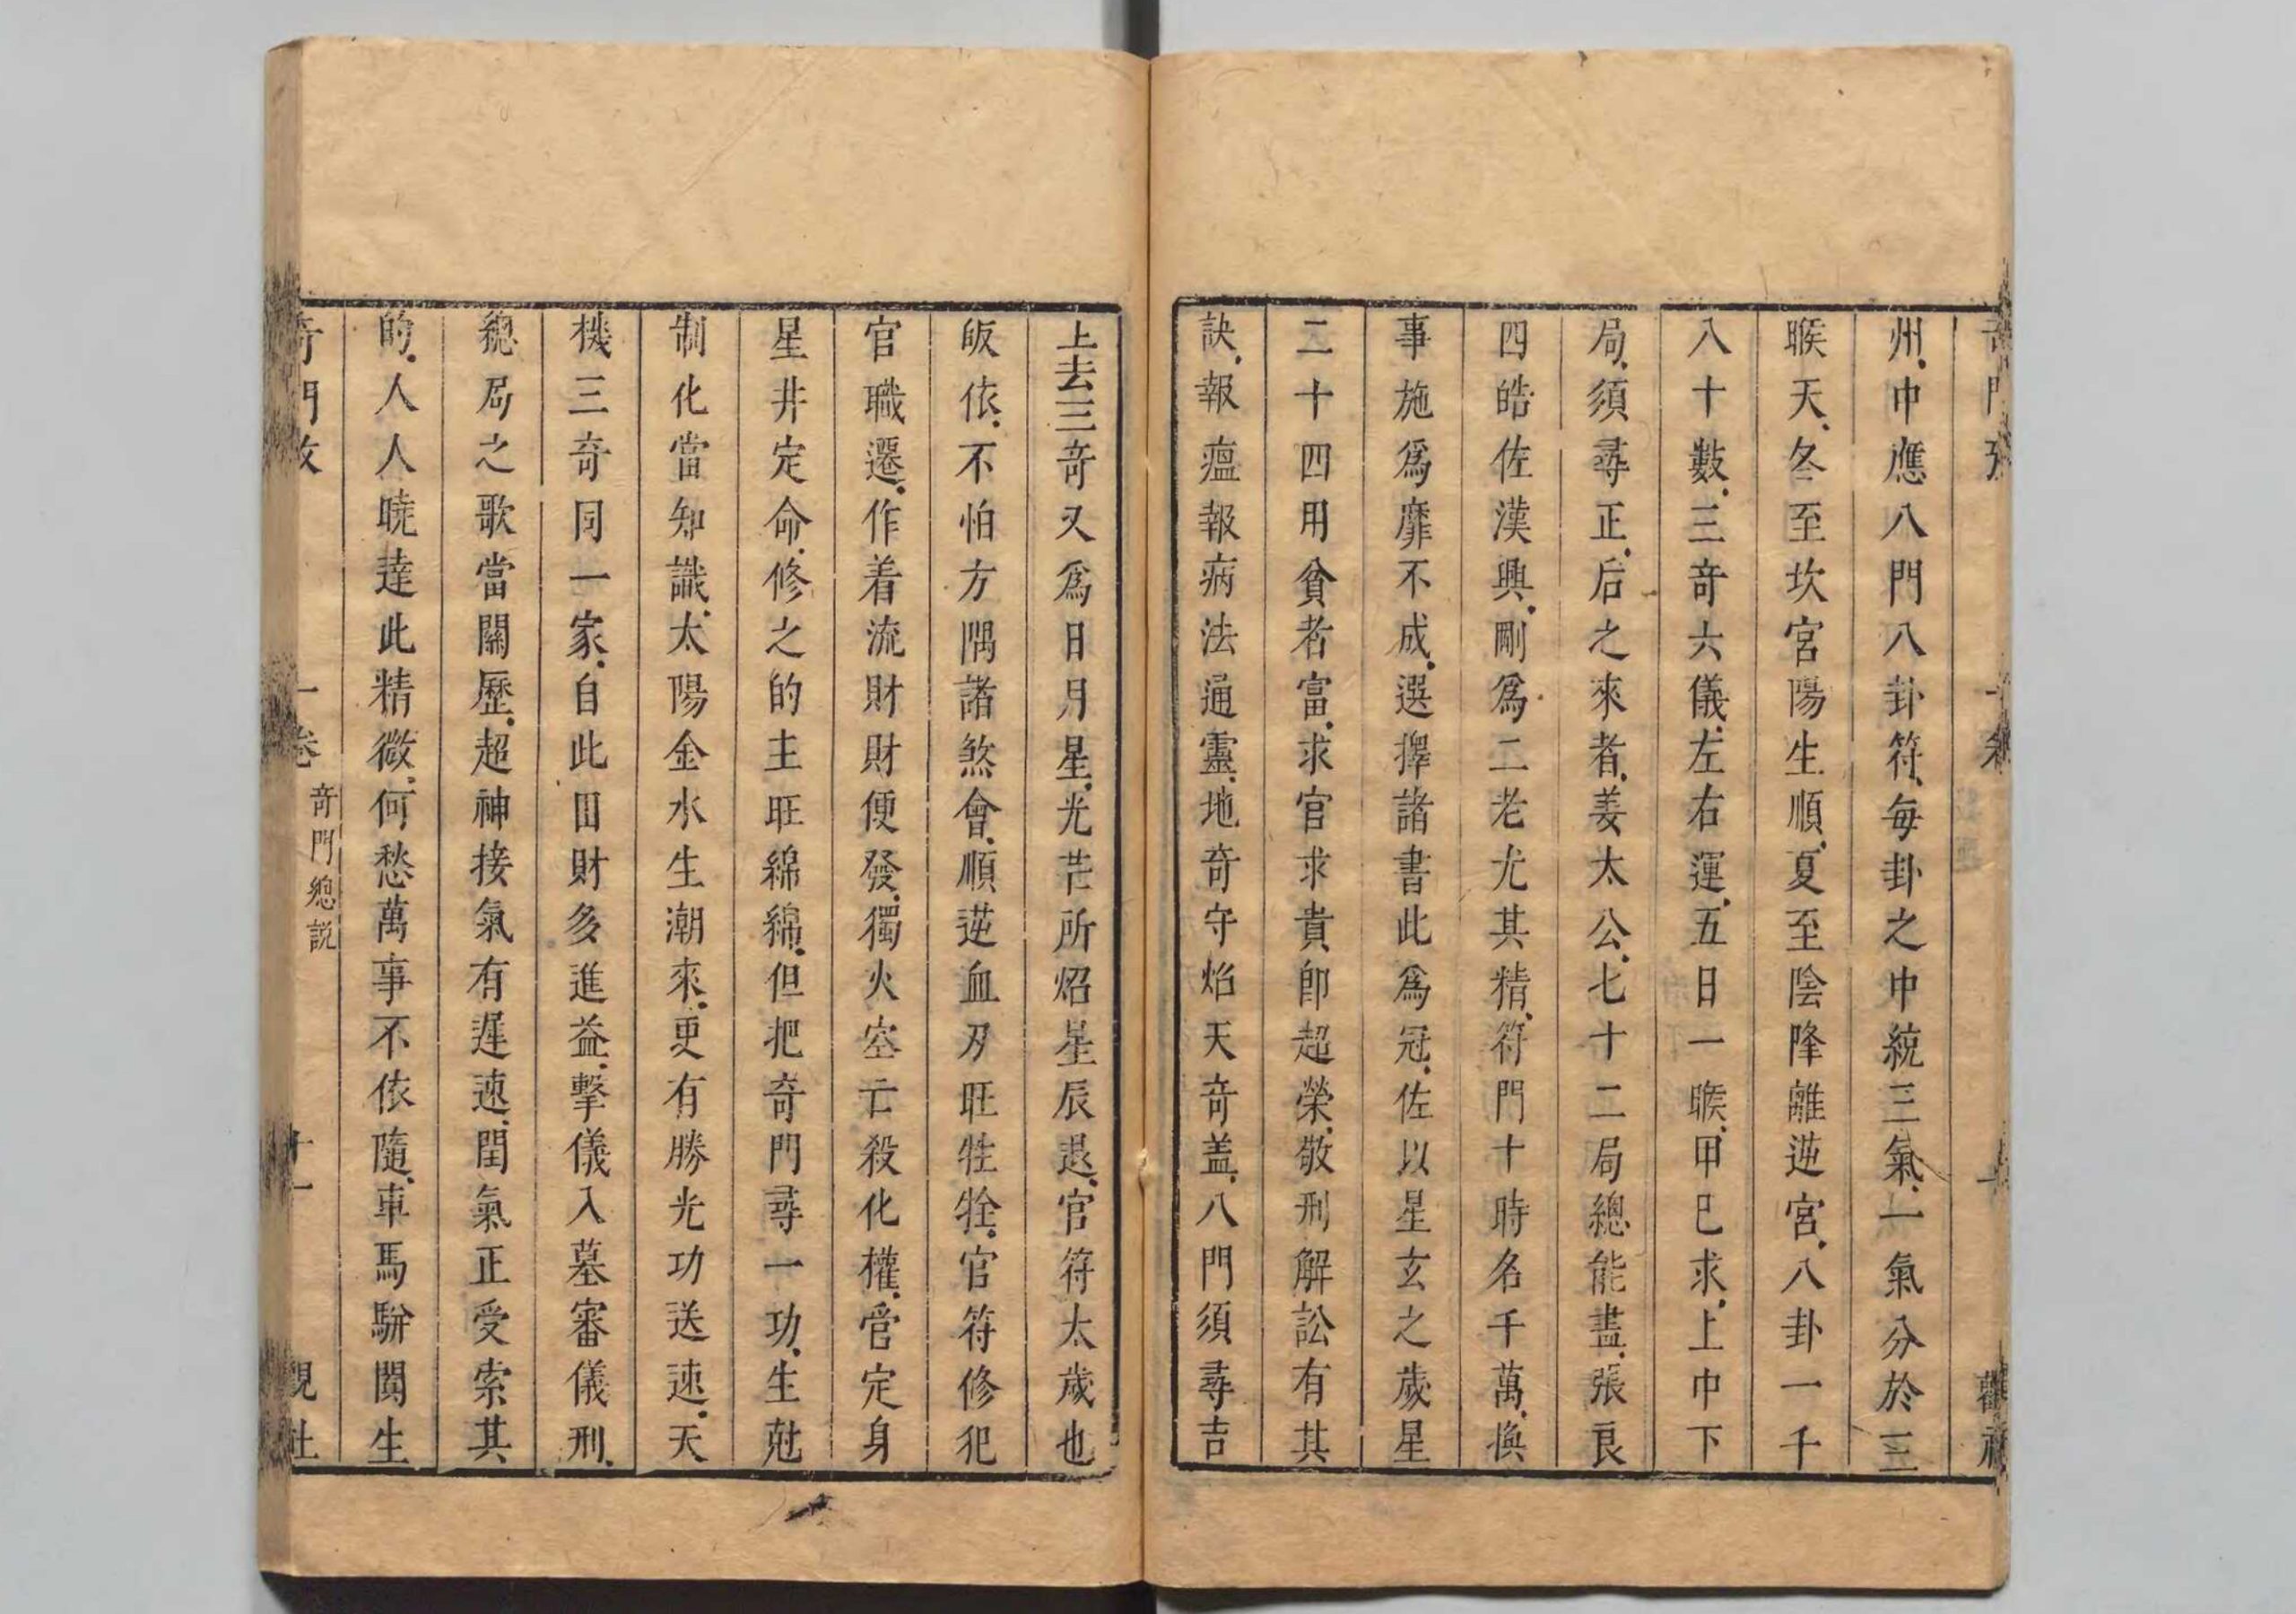 州中應八門八卦符每卦之中統三氣一氣分於三
睺天冬至坎宮陽生順夏至陰降離逆宮八卦一千
八十數三奇六儀左右運五日一睺甲已求上中下
局須尋正后之來者姜太公七十二局總能盡張良
四皓佐漢興剛爲二老尤其精符門十時名千萬換
事施爲靡不成選擇諸書此爲冠佐以星玄之歲星
二十四用貧者富求官求貴卽超榮敬刑解訟有其
訣報瘟報病法通靈地奇守焰天奇盖八門須尋吉
上去三奇又爲日月星光芒所炤星辰退官符太歲也
皈依不怕方隅諸煞會順逆血刃旺牲牷官符修犯
官職遷作着流財財便發獨火空亡殺化權官定身
星井定命修之的主旺綿綿但把奇門尋一功生尅
制化當知識太陽金水生潮來更有勝光功送速天
機三奇同一家自此田財多進益擊儀入墓審儀刑
總局之歌當關歷超神接氣有遲速閏氣正受索其
的人人曉達此精微何愁萬事不依隨車馬駢闐生
奇門 一卷 奇門總説 十一